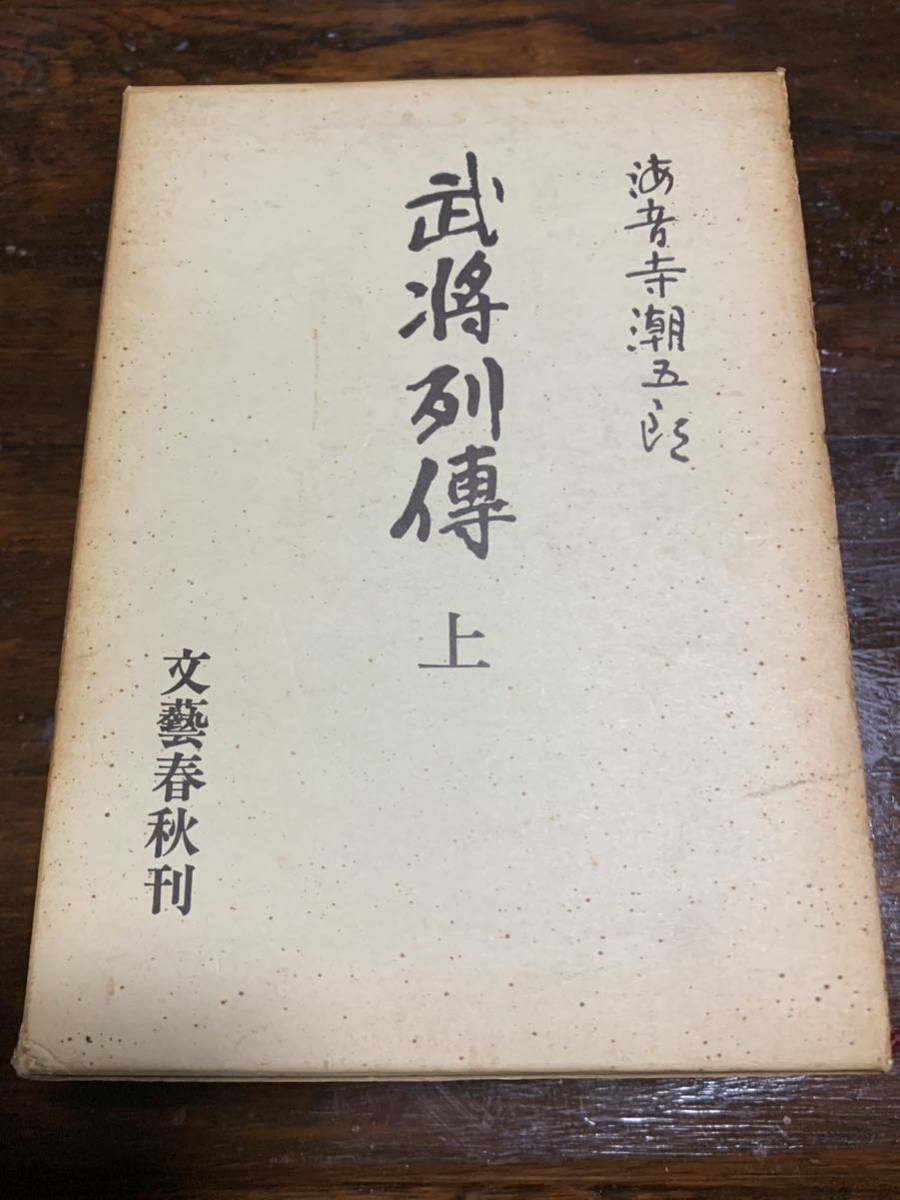 海音寺潮五郎
武将列傳 上
文藝春秋刊